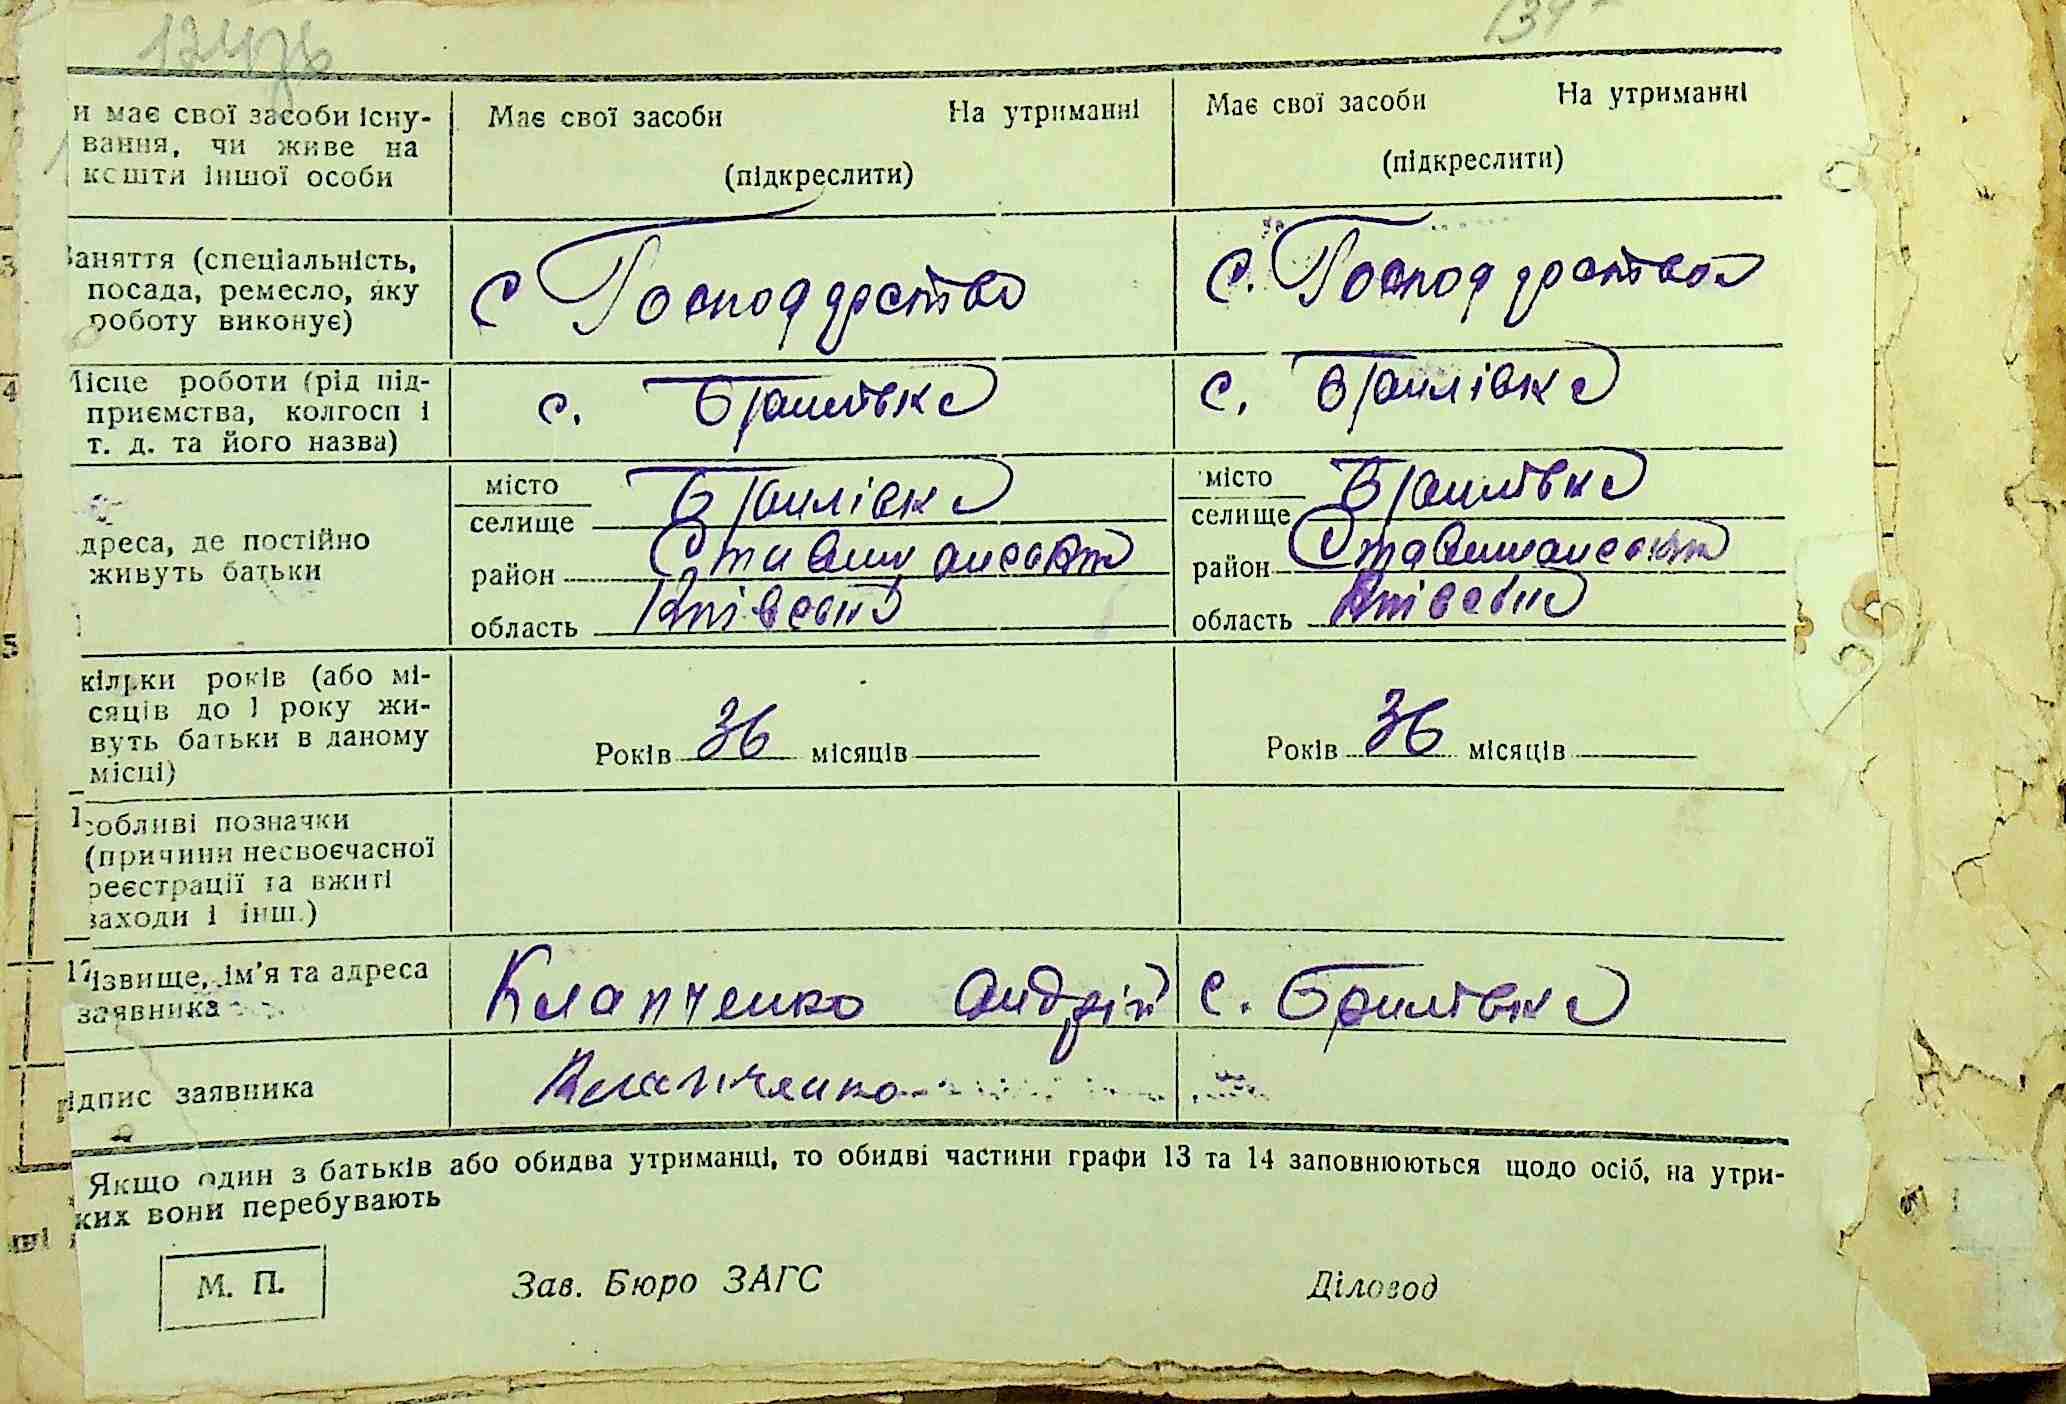 и має свої засоби існу-
вання, чи живе на
кошти іншої особи
Має свої засоби На утриманні
(підкреслити)
Має свої засоби На утриманні
(підкреслити)
Заняття (спеціальність,
посада, ремесло, яку
роботу виконує)
с Господарство
с. Господарство
3
Місце роботи (рід під-
приємства, колгосп і
т. д. та його назва)
с. Брилівка
с. Брилівка
4
дреса, де постійно
живуть батьки
місто
селище Брилівка
район Ставищанский
область Київська
місто
селище Брилівка
район Ставищанский
область Київська
5
кільки років (або мі-
сяців до 1 року жи-
вуть батьки в даному
місці)
Років 36 місяців
Років 36 місяців
собливі позначки
(причини несвоєчасної
реєстрації та вжиті
заходи і інш.)
ізвище, ім'я та адреса
заявника
Клапченко Андрій с. Брилівка
ідпис заявника
Клапченко
Якщо один з батьків або обидва утриманці, то обидві частини графи 13 та 14 заповнюються щодо осіб, на утри-
ких вони перебувають
М. П. Зав. Бюро ЗАГС Діловод